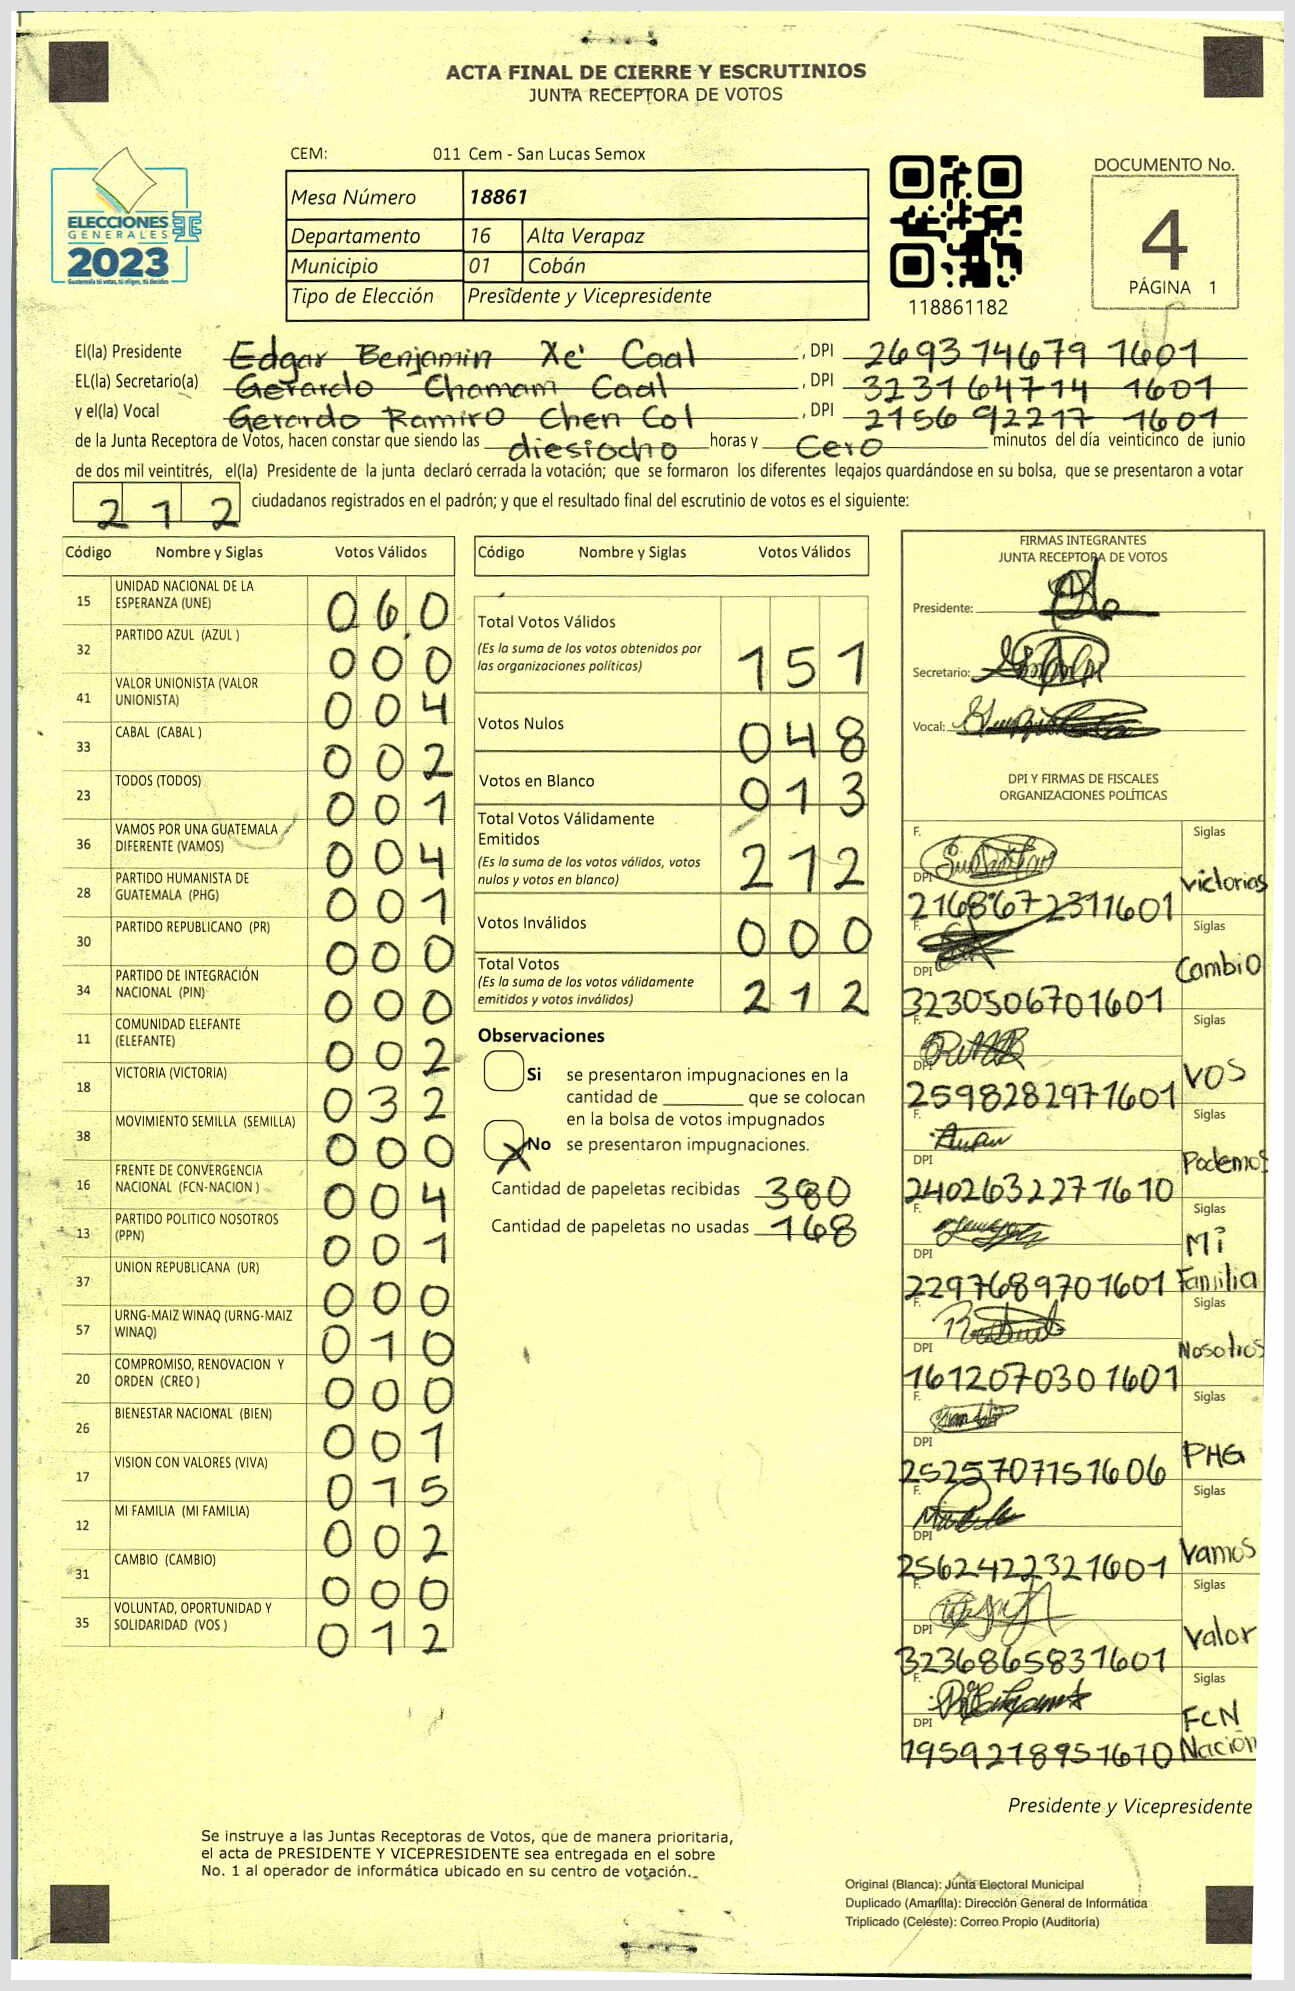 ACTA FINAL DE CIERRE Y ESCRUTINIOS
JUNTA RECEPTORA DE VOTOS
CEM: 011 Cem - San Lucas Semox
DOCUMENTO No.
4
PÁGINA 1
Mesa Número 18861
Departamento 16 Alta Verapaz
Municipio 01 Cobán
Tipo de Elección Presidente y Vicepresidente
118861182
ELECCIONES
GENERALES
2023
Guatemala tú votas, tú eliges, tú decides
El(la) Presidente Edgar Benjamin Xe' Caal , DPI 269374679 1601
EL(la) Secretario(a) Gerardo Chamam Caal , DPI 323764714 1601
y el(la) Vocal Gerardo Ramiro Chen Col , DPI 2156 92217 1601
de la Junta Receptora de Votos, hacen constar que siendo las diesiocho horas y Cero minutos del día veinticinco de junio
de dos mil veintitrés, el(la) Presidente de la junta declaró cerrada la votación; que se formaron los diferentes legajos quardándose en su bolsa, que se presentaron a votar
212 ciudadanos registrados en el padrón; y que el resultado final del escrutinio de votos es el siguiente:
Código Nombre y Siglas Votos Válidos
15 UNIDAD NACIONAL DE LA ESPERANZA (UNE) 060
32 PARTIDO AZUL (AZUL ) 000
41 VALOR UNIONISTA (VALOR UNIONISTA) 004
33 CABAL (CABAL ) 002
23 TODOS (TODOS) 001
36 VAMOS POR UNA GUATEMALA DIFERENTE (VAMOS) 004
28 PARTIDO HUMANISTA DE GUATEMALA (PHG) 001
30 PARTIDO REPUBLICANO (PR) 000
34 PARTIDO DE INTEGRACIÓN NACIONAL (PIN) 000
11 COMUNIDAD ELEFANTE (ELEFANTE) 002
18 VICTORIA (VICTORIA) 032
38 MOVIMIENTO SEMILLA (SEMILLA) 000
16 FRENTE DE CONVERGENCIA NACIONAL (FCN-NACION ) 004
13 PARTIDO POLITICO NOSOTROS (PPN) 001
37 UNION REPUBLICANA (UR) 000
57 URNG-MAIZ WINAQ (URNG-MAIZ WINAQ) 010
20 COMPROMISO, RENOVACION Y ORDEN (CREO ) 000
26 BIENESTAR NACIONAL (BIEN) 001
17 VISION CON VALORES (VIVA) 015
12 MI FAMILIA (MI FAMILIA) 002
31 CAMBIO (CAMBIO) 000
35 VOLUNTAD, OPORTUNIDAD Y SOLIDARIDAD (VOS ) 012
Código Nombre y Siglas Votos Válidos
Total Votos Válidos
(Es la suma de los votos obtenidos por
las organizaciones políticas) 151
Votos Nulos 048
Votos en Blanco 013
Total Votos Válidamente
Emitidos
(Es la suma de los votos válidos, votos
nulos y votos en blanco) 212
Votos Inválidos 000
Total Votos
(Es la suma de los votos válidamente
emitidos y votos inválidos) 212
Observaciones
Si se presentaron impugnaciones en la
cantidad de ________ que se colocan
en la bolsa de votos impugnados
X No se presentaron impugnaciones.
Cantidad de papeletas recibidas 380
Cantidad de papeletas no usadas 168
FIRMAS INTEGRANTES
JUNTA RECEPTORA DE VOTOS
Presidente:
Secretario:
Vocal:
DPI Y FIRMAS DE FISCALES
ORGANIZACIONES POLÍTICAS
F. Siglas
DPI 2168672311601 victorias
F. Siglas
DPI 3230506701601 Cambio
F. Siglas
DPI 2598282971601 VOS
F. Siglas
DPI 2402632271610 Podemos
F. Siglas
DPI 2297689701601 Mi Familia
F. Siglas
DPI 1612070301601 Nosotros
F. Siglas
DPI 2525707151606 PHG
F. Siglas
DPI 2562422321601 Vamos
F. Siglas
DPI 3236865831601 Valor
F. Siglas
DPI 1959218951610 FCN Nación
Presidente y Vicepresidente
Se instruye a las Juntas Receptoras de Votos, que de manera prioritaria,
el acta de PRESIDENTE Y VICEPRESIDENTE sea entregada en el sobre
No. 1 al operador de informática ubicado en su centro de votación.
Original (Blanca): Junta Electoral Municipal
Duplicado (Amarilla): Dirección General de Informática
Triplicado (Celeste): Correo Propio (Auditoría)